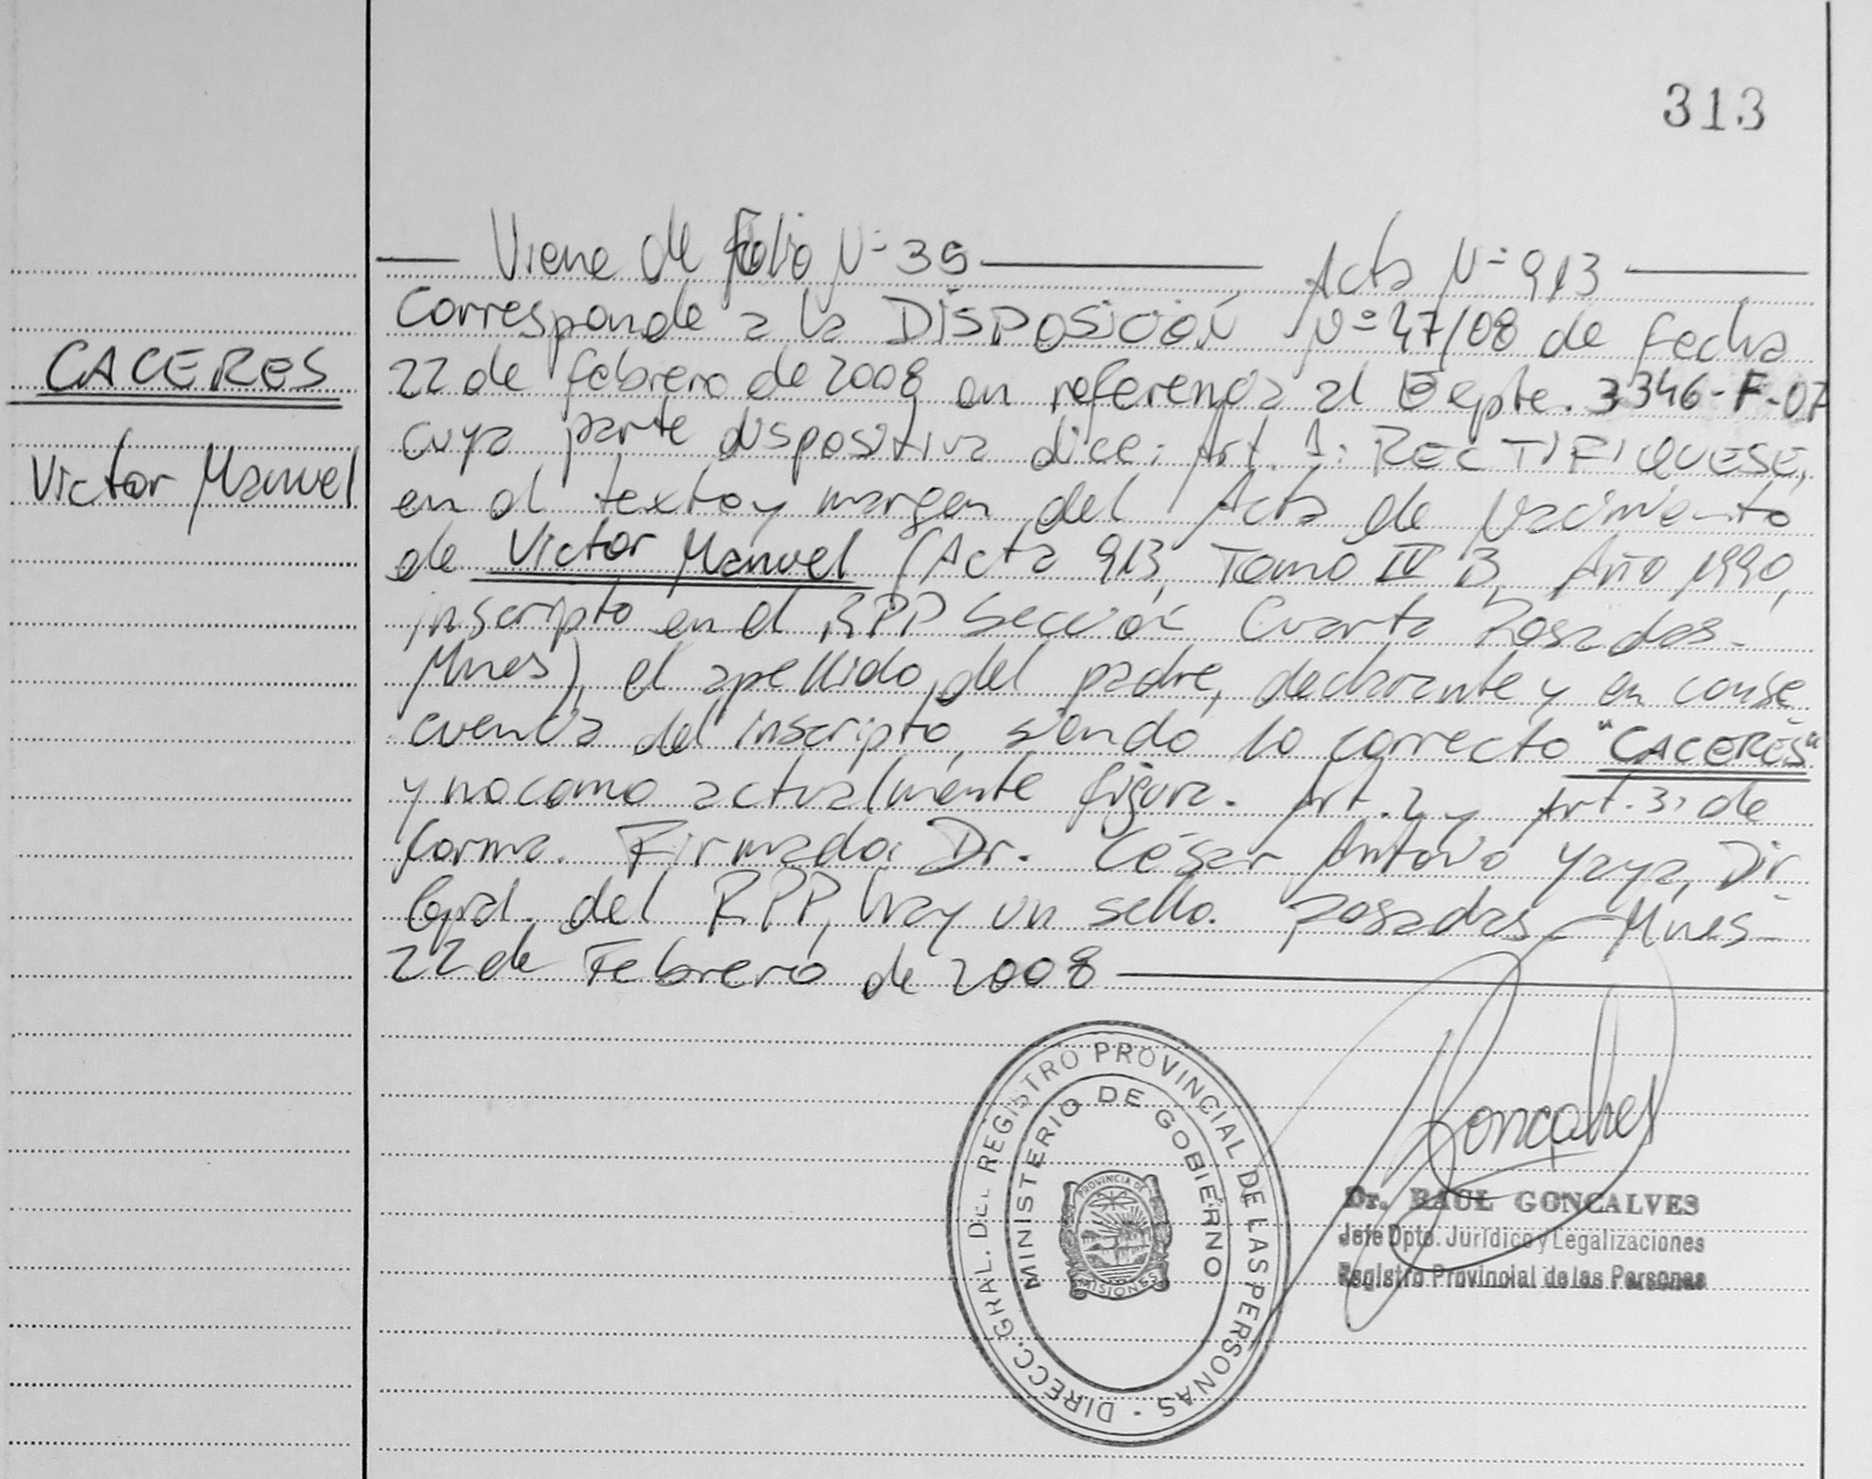 313
Viene de folio N° 35 Acta N° 913
CACERES
Victor Manuel
Corresponde a la DISPOSICIÓN N° 47/08 de fecha
22 de febrero de 2008 en referencia al Expte. 3346-F-07
cuya parte dispositiva dice: Art. 1: RECTIFIQUESE,
en el texto y margen del Acta de Nacimiento
de Victor Manuel (Acta 913, Tomo IV B, Año 1990,
inscripto en el RPP Sección Cuarta Posadas-
Mnes), el apellido del padre, declarante y en conse
cuencia del inscripto, siendo lo correcto "CACERES"
y no como actualmente figura. Art. 2 y Art. 3: de
forma. Firmado: Dr. César Antonio Yaya, Dir
Gral. del RPP, hay un sello. Posadas - Mnes-
22 de Febrero de 2008
DIRECC. GRAL. DEL REGISTRO PROVINCIAL DE LAS PERSONAS -
MINISTERIO DE GOBIERNO
PROVINCIA DE
MISIONES
Goncalves
Dr. RAUL GONCALVES
Jefe Dpto. Jurídico y Legalizaciones
Registro Provincial de las Personas